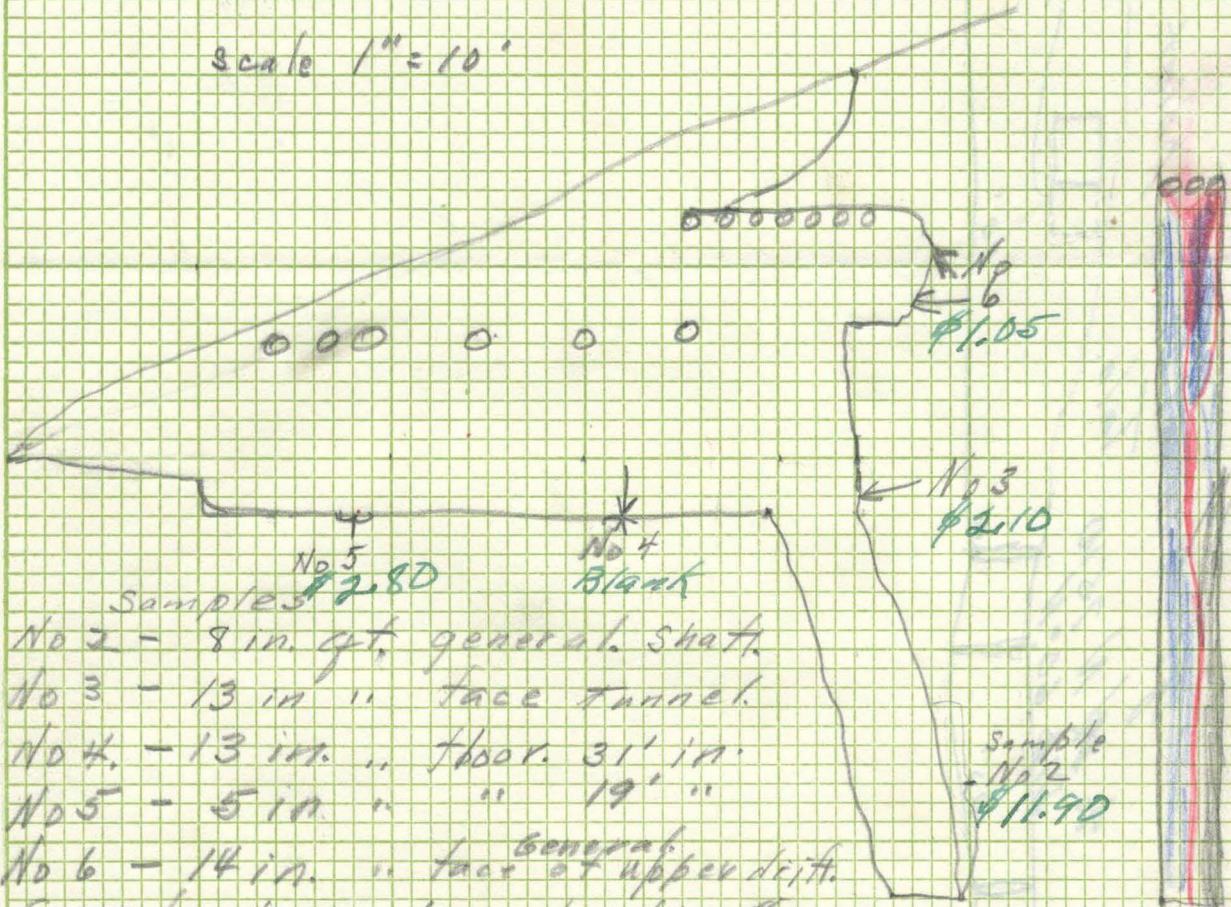 Scale 1" = 10'
No 6
$1.05
No 3
$2.10
No 5
$2.80
No 4
Blank
Samples
No 2 - 8 in. qt. general. Shaft.
No 3 - 13 in " face Tunnel.
No 4. - 13 in. " floor. 31' in.
No 5 - 5 in " " 19' "
No 6 - 14 in. " General face of upper drift.
Sample
No 2
$11.90